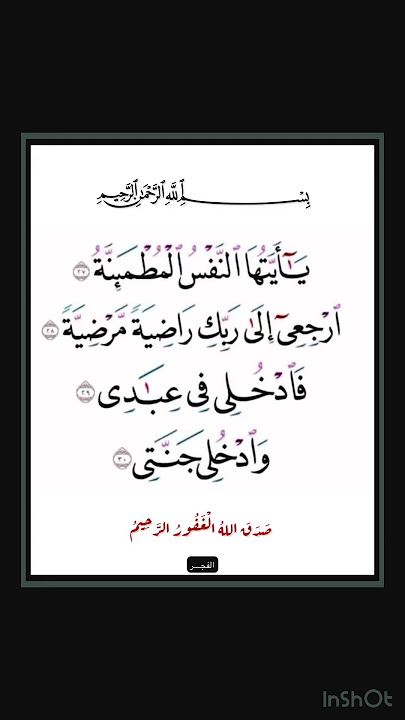 بِسْـــــــــمِ اللَّهِ الرَّحْمَٰنِ الرَّحِيمِ
يَـٰٓأَيَّتُهَا ٱلنَّفْسُ ٱلْمُطْمَئِنَّةُ ٢٧
ٱرْجِعِىٓ إِلَىٰ رَبِّكِ رَاضِيَةً مَّرْضِيَّةً ٢٨
فَٱدْخُلِى فِى عِبَـٰدِى ٢٩
وَٱدْخُلِى جَنَّتِى ٣٠
صَدَقَ اللهُ الْغَفُورُ الرَّحِيمُ
الفجـــر
InShOt